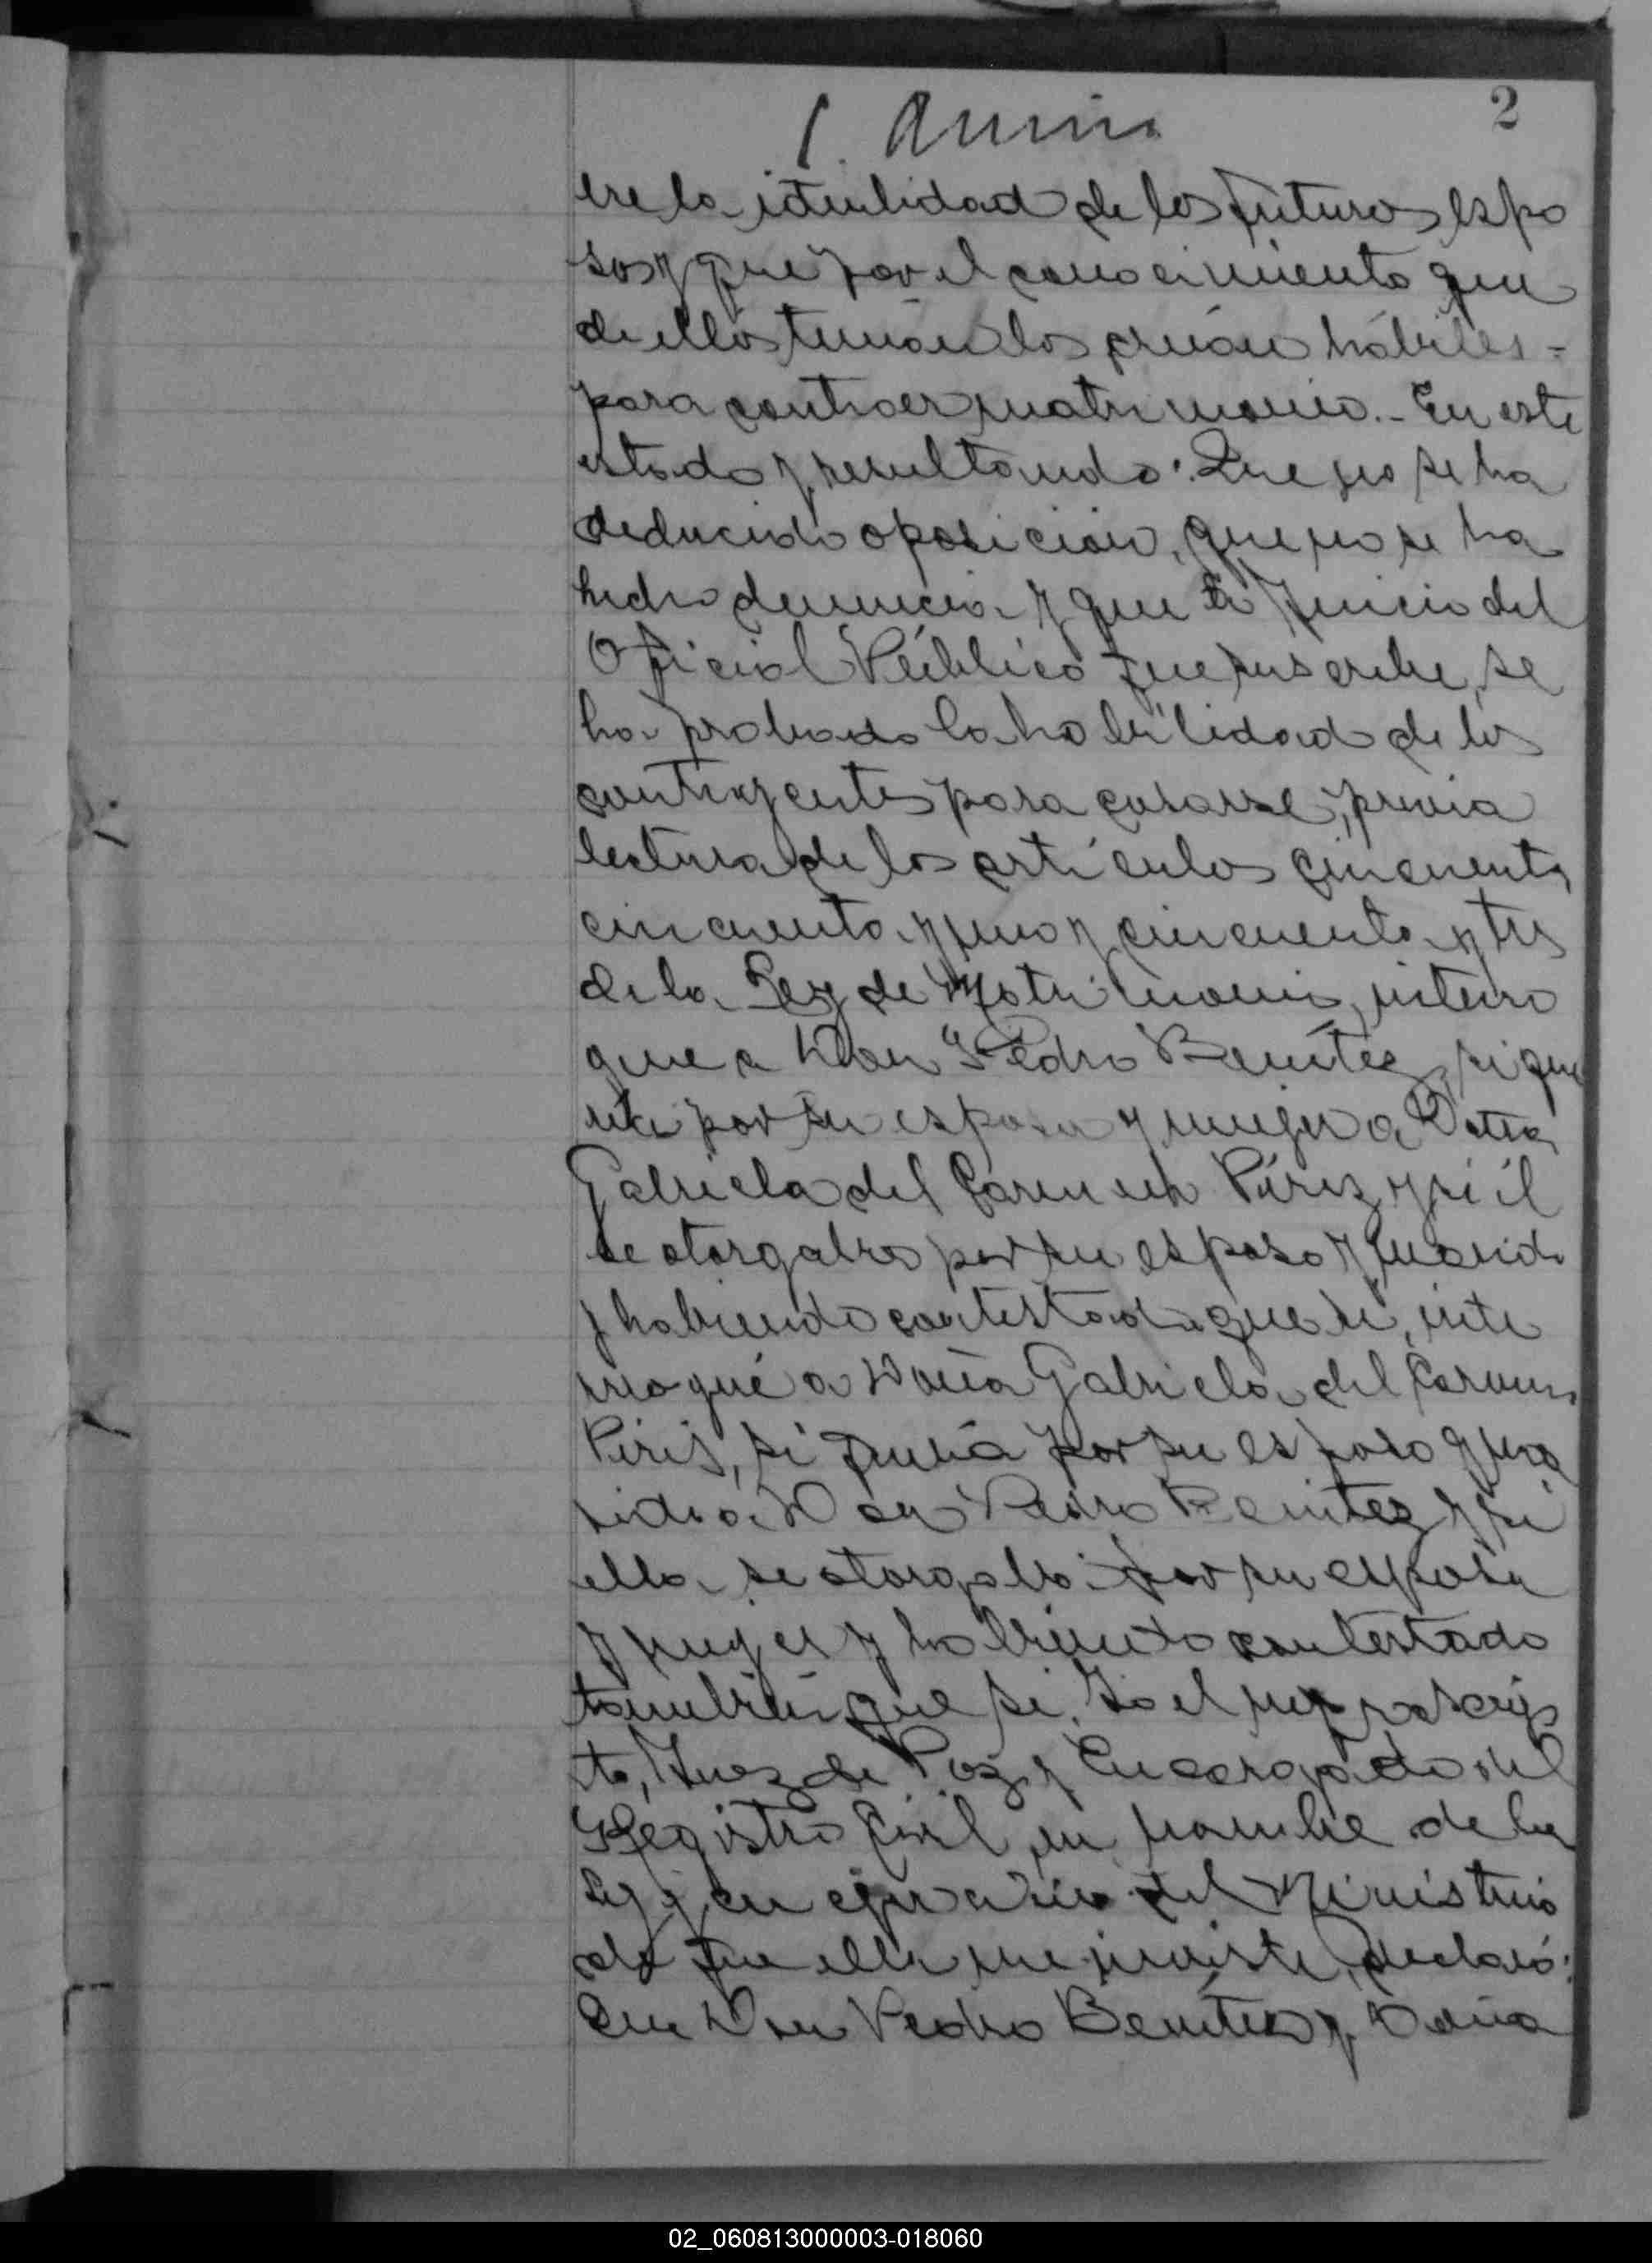 2
bre la identidad de los futuros espo
sos y que por el conocimiento que
de ellos tenían los creían hábiles -
para contraer matrimonio.- En este
estado y resultando: Que no se ha
deducido oposición, que no se ha
hecho denuncia y que a juicio del
Oficial Público que suscribe, se
ha probado la habilidad de los
contrayentes para casarse, previa
lectura de los artículos cincuenta,
cincuenta y uno y cincuenta y tres
de la Ley de Matrimonio, interro
gue a Don Pedro Benítez, si que
ría por su esposa y mujer a Doña
Gabriela del Carmen Píriz y si él
se otorgaba por su esposo y marido
y habiendo contestado que si, inte
rrogué a Doña Gabriela del Carmen
Piris, si quería por su esposo y ma
rido a Don Pedro Benitez y si
ella se otorgaba por su esposa
y mujer y habiendo contestado
también que si, Yo el infrascrip
to, Juez de Paz y Encargado del
Registro Civil en nombre de la
Ley y en ejercicio del Ministerio
de que ella me inviste, declaró:
Que Don Pedro Benítez y Doña
02_060813000003-018060